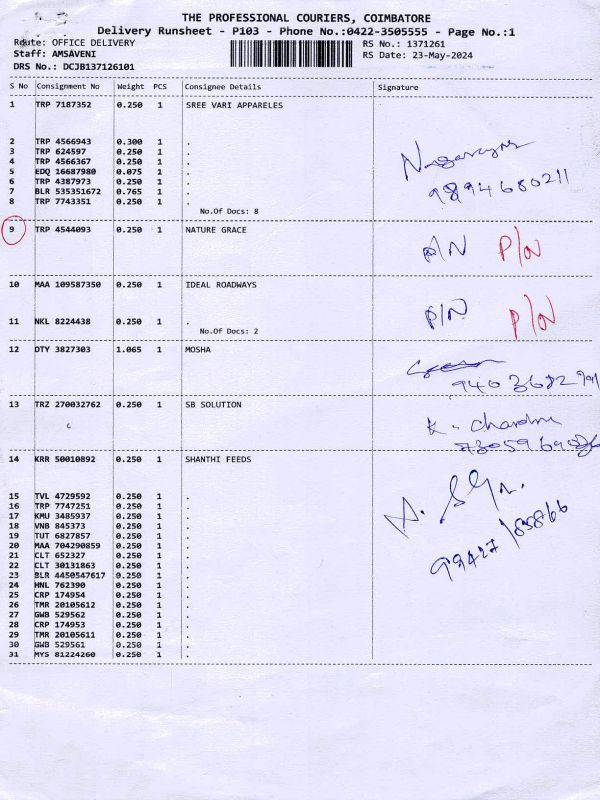 THE PROFESSIONAL COURIERS, COIMBATORE
Delivery Runsheet - P103 - Phone No.:0422-3505555 - Page No.:1
Route: OFFICE DELIVERY RS No.: 1371261
Staff: AMSAVENI RS Date: 23-May-2024
DRS No.: DCJB137126101
S No Consignment No Weight PCS Consignee Details Signature
1 TRP 7187352 0.250 1 SREE VARI APPARELES
2 TRP 4566943 0.300 1 .
3 TRP 624597 0.250 1 .
4 TRP 4566367 0.250 1 .
5 EDQ 16687980 0.075 1 .
6 TRP 4387973 0.250 1 .
7 BLR 535351672 0.765 1 .
8 TRP 7743351 0.250 1 .
9894680211
No.Of Docs: 8
9 TRP 4544093 0.250 1 NATURE GRACE
P/N P/N
10 MAA 109587350 0.250 1 IDEAL ROADWAYS
11 NKL 8224438 0.250 1 . P/N P/N
No.Of Docs: 2
12 DTY 3827303 1.065 1 MOSHA
13 TRZ 270032762 0.250 1 SB SOLUTION
14 KRR 50010892 0.250 1 SHANTHI FEEDS
15 TVL 4729592 0.250 1 .
16 TRP 7747251 0.250 1 .
17 KMU 3485937 0.250 1 .
18 VNB 845373 0.250 1 .
19 TUT 6827857 0.250 1 .
20 MAA 704290859 0.250 1 .
21 CLT 652327 0.250 1 .
22 CLT 30131863 0.250 1 .
23 BLR 4450547617 0.250 1 .
24 HNL 762390 0.250 1 .
25 CRP 174954 0.250 1 .
26 TMR 20105612 0.250 1 .
27 GWB 529562 0.250 1 .
28 CRP 174953 0.250 1 .
29 TMR 20105611 0.250 1 .
30 GWB 529561 0.250 1 .
31 MYS 81224260 0.250 1 .